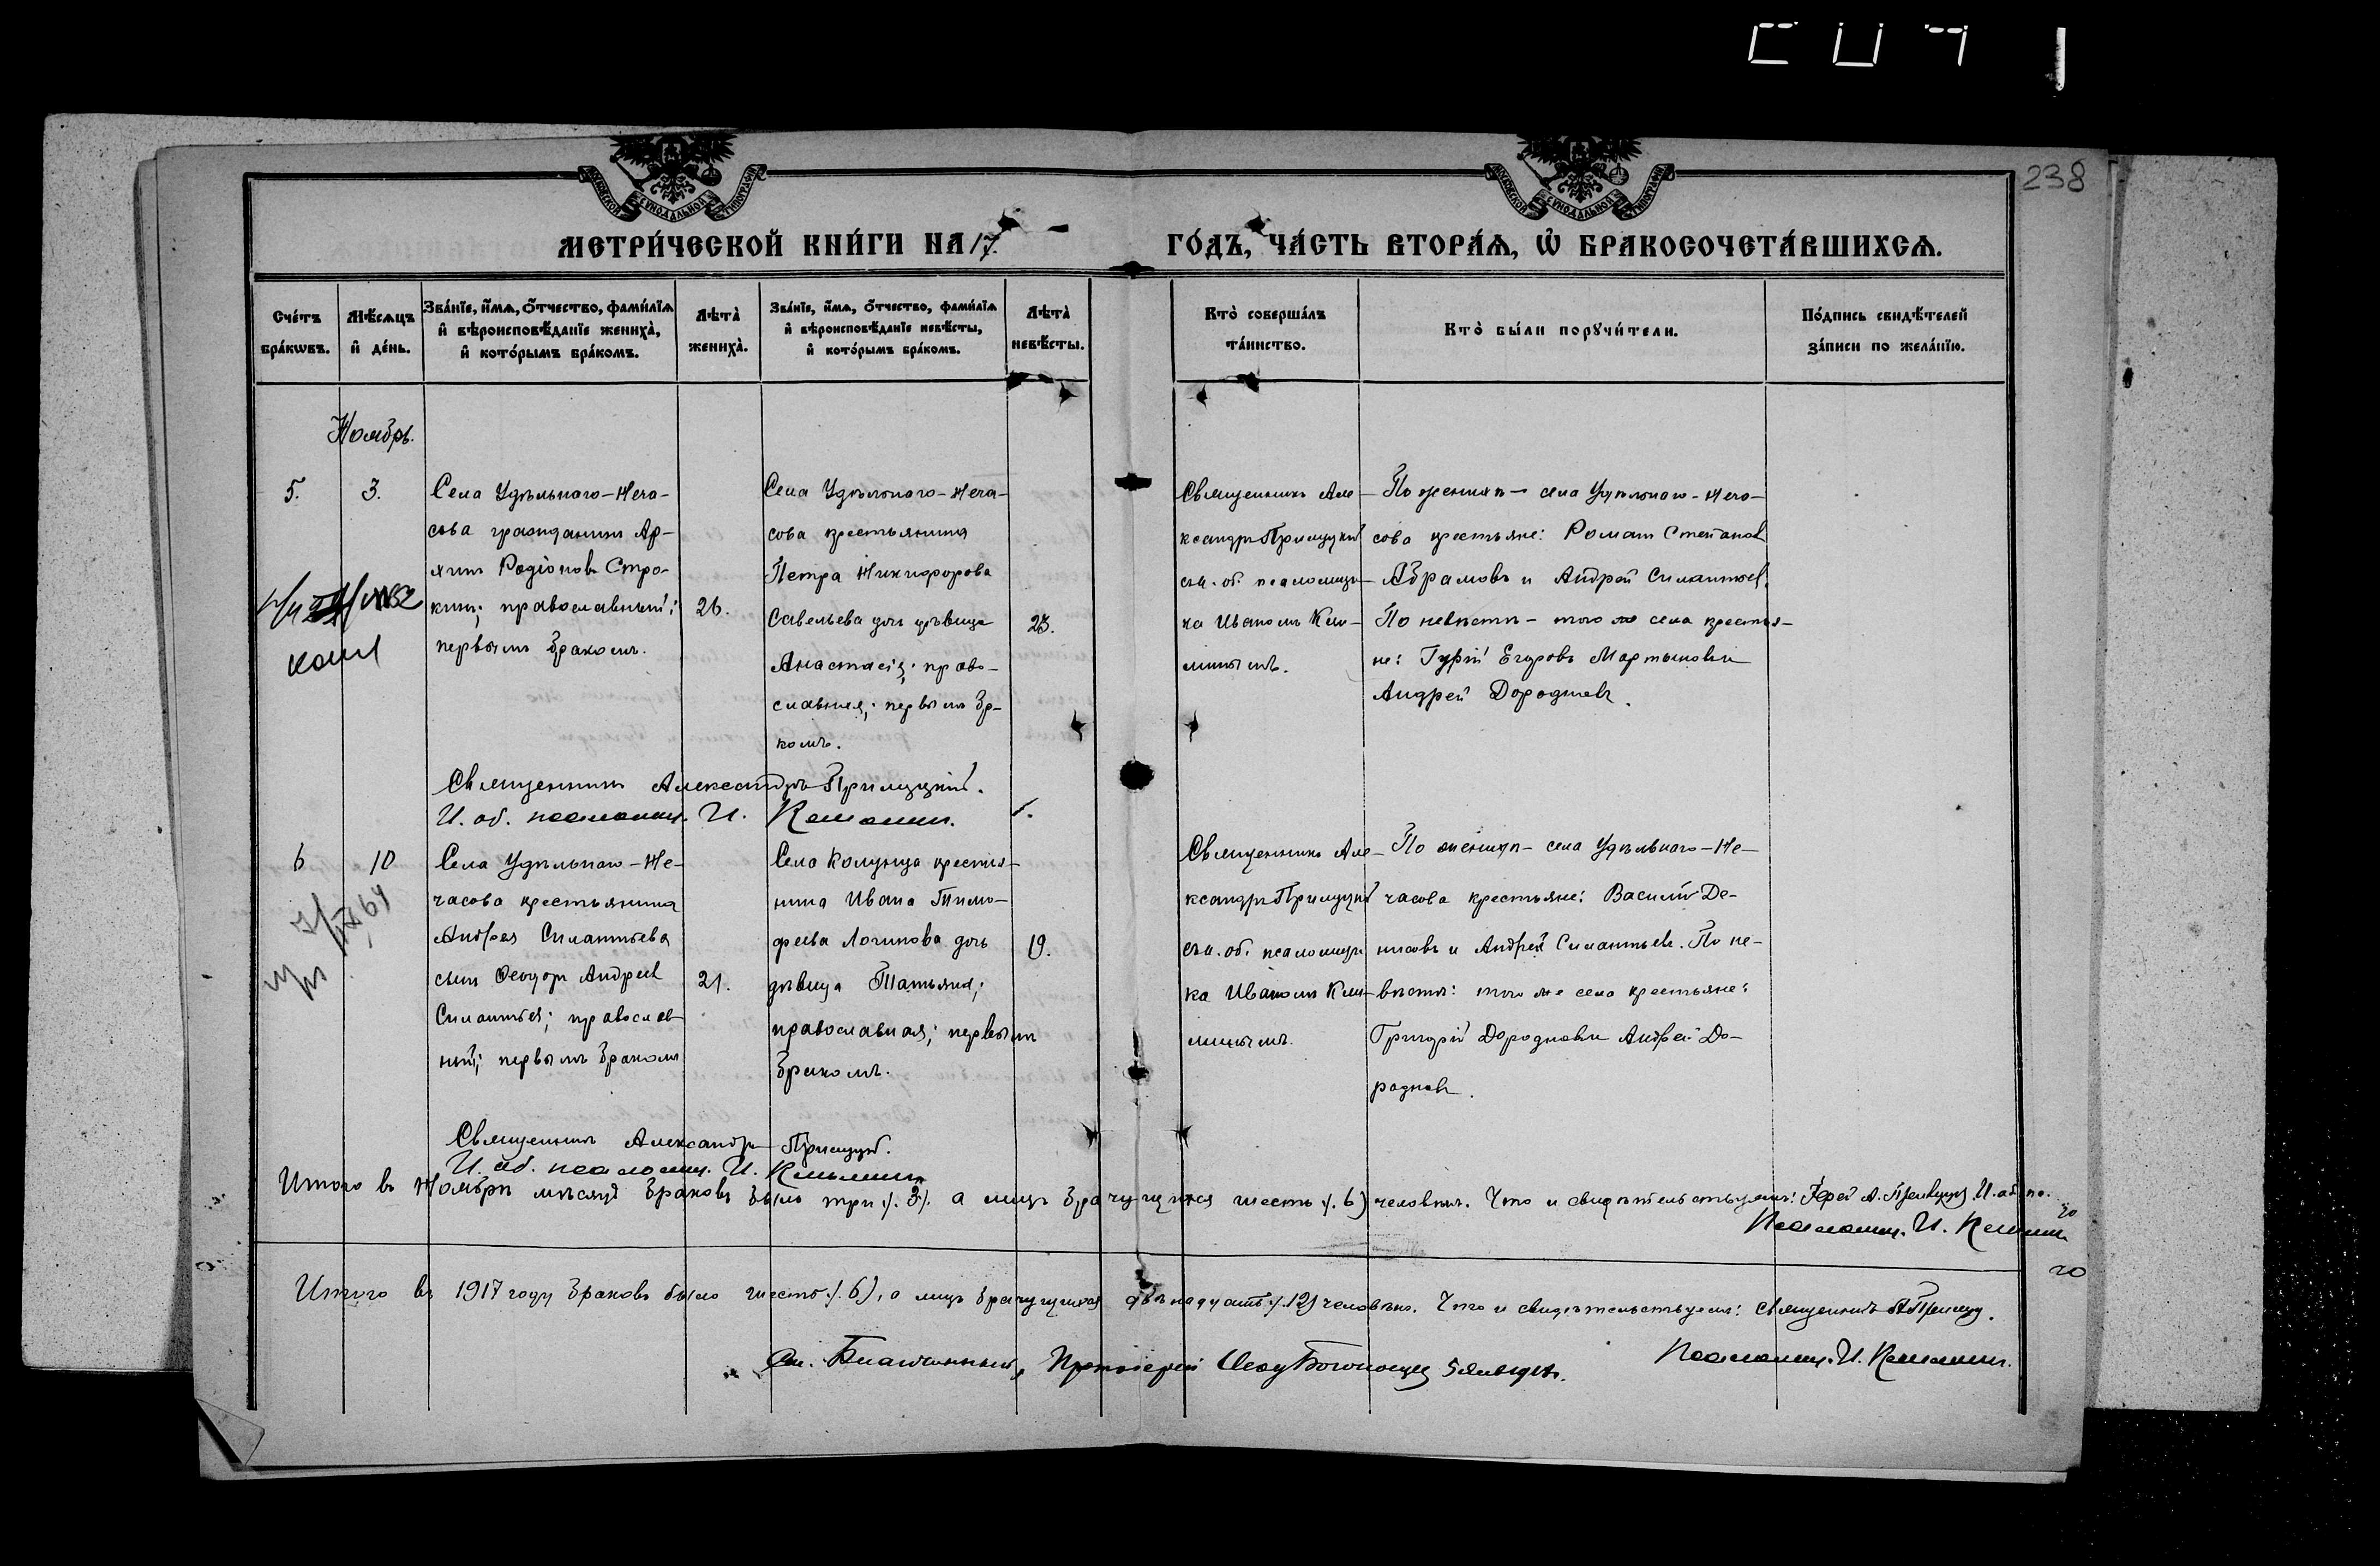 238
МЕТРИ́ЧЕСКОЙ КНИ́ГИ НА 17. ГО́ДЪ, ЧА́СТЬ ВТОРА́Ѧ, Ѡ БРАКОСОЧЕТА́ВШИХСѦ.
Сче́тъ бра́кѡвъ.
Мѣ́сѧцъ и҆ де́нь.
Зва́нїе, и҆́мѧ, ѻ҆́тчество, фами́лїѧ
и҆ вѣроисповѣ́данїе жениха̀,
и҆ кото́рымъ бра́комъ.
Лѣта̀ жениха̀.
Зва́нїе, и҆́мѧ, ѻ҆́тчество, фами́лїѧ
и҆ вѣроисповѣ́данїе невѣ́сты,
и҆ кото́рымъ бра́комъ.
Лѣта̀ невѣ́сты.
Кто̀ соверша́лъ
та́инство.
Кто̀ бы́ли порꙋчи́тели.
По́дпись свидѣ́телей
за́писи по жела́нїю.
Ноябрь.
5.
3.
Села Удѣльнаго-Неча-
сова гражданинъ Ар-
Родіоновъ Стро-
кинъ; православный;
первымъ бракомъ.
26.
Села Удѣльнаго-Неча-
сова крестьянина
Петра Никифорова
Савельева дочь дѣвица
Анастасія; право-
славная; первымъ бр-
комъ.
23.
Священникъ Але-
ксандръ Прилуцкій
съ и. об. псаломщи-
ка Иваномъ Кли-
минымъ.
По женихѣ - села Удѣльнаго-Неча-
сова крестьяне: Романъ Степановъ
Абрамовъ и Андрей Силантьевъ.
По невѣстѣ - того же села крестья-
не: Гурій Егоровъ Мартыновъ и
Андрей Дородновъ.
Священникъ Александръ Прилуцкій.
И. об. псаломщ. И.
6
10
Села Удѣльнаго-Не-
часова крестьянина
Андрея Силантьева
сынъ Ѳеодоръ Андреевъ
Силантьев; православ-
ный; первымъ бракомъ
21.
Села Колунца крестья-
нина Ивана Тимо-
феева Логинова дочь
дѣвица Татьяна;
православная; первымъ
бракомъ.
19.
Священникъ Але-
ксандръ Прилуцкій
съ и. об. псаломщи-
ка Иваномъ Кли-
минымъ.
По женихѣ - села Удѣльнаго-Не-
часова крестьяне: Василій Де-
нисовъ и Андрей Силантьевъ. По не-
вѣстѣ: того же села крестьяне:
Григорій Дородновъ и Андрей До-
родновъ.
Священникъ Александръ Прилуцкій.
И. об. псаломщ. И.
Итого въ Ноябрѣ мѣсяцѣ браковъ было три (3) а лицъ брачущихся шесть (6) человѣкъ. Что и свидѣтельствуемъ: Іерей А. Прилуцкій. И. об.
Псаломщ. И.
Итого въ 1917 году браковъ было шесть (6), а лицъ брачущихся двѣнадцать (12) человѣкъ. Что и свидѣтельствуемъ: Священникъ А Прилуц.
Псаломщ. И.
Благочинный, Протоіерей